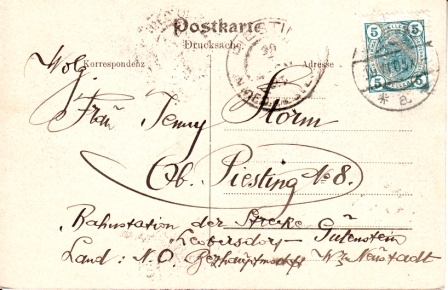 Postkarte
Drucksache
Korrespondenz
Adresse
5 5
5 5
Wolg.
Frau Jenny Storm
Ob. Piesting № 8.
Bahnstation der Strecke
Leobersdorf – Gutenstein
Land: N.O. Bezhauptmschft Wr. Neustadt